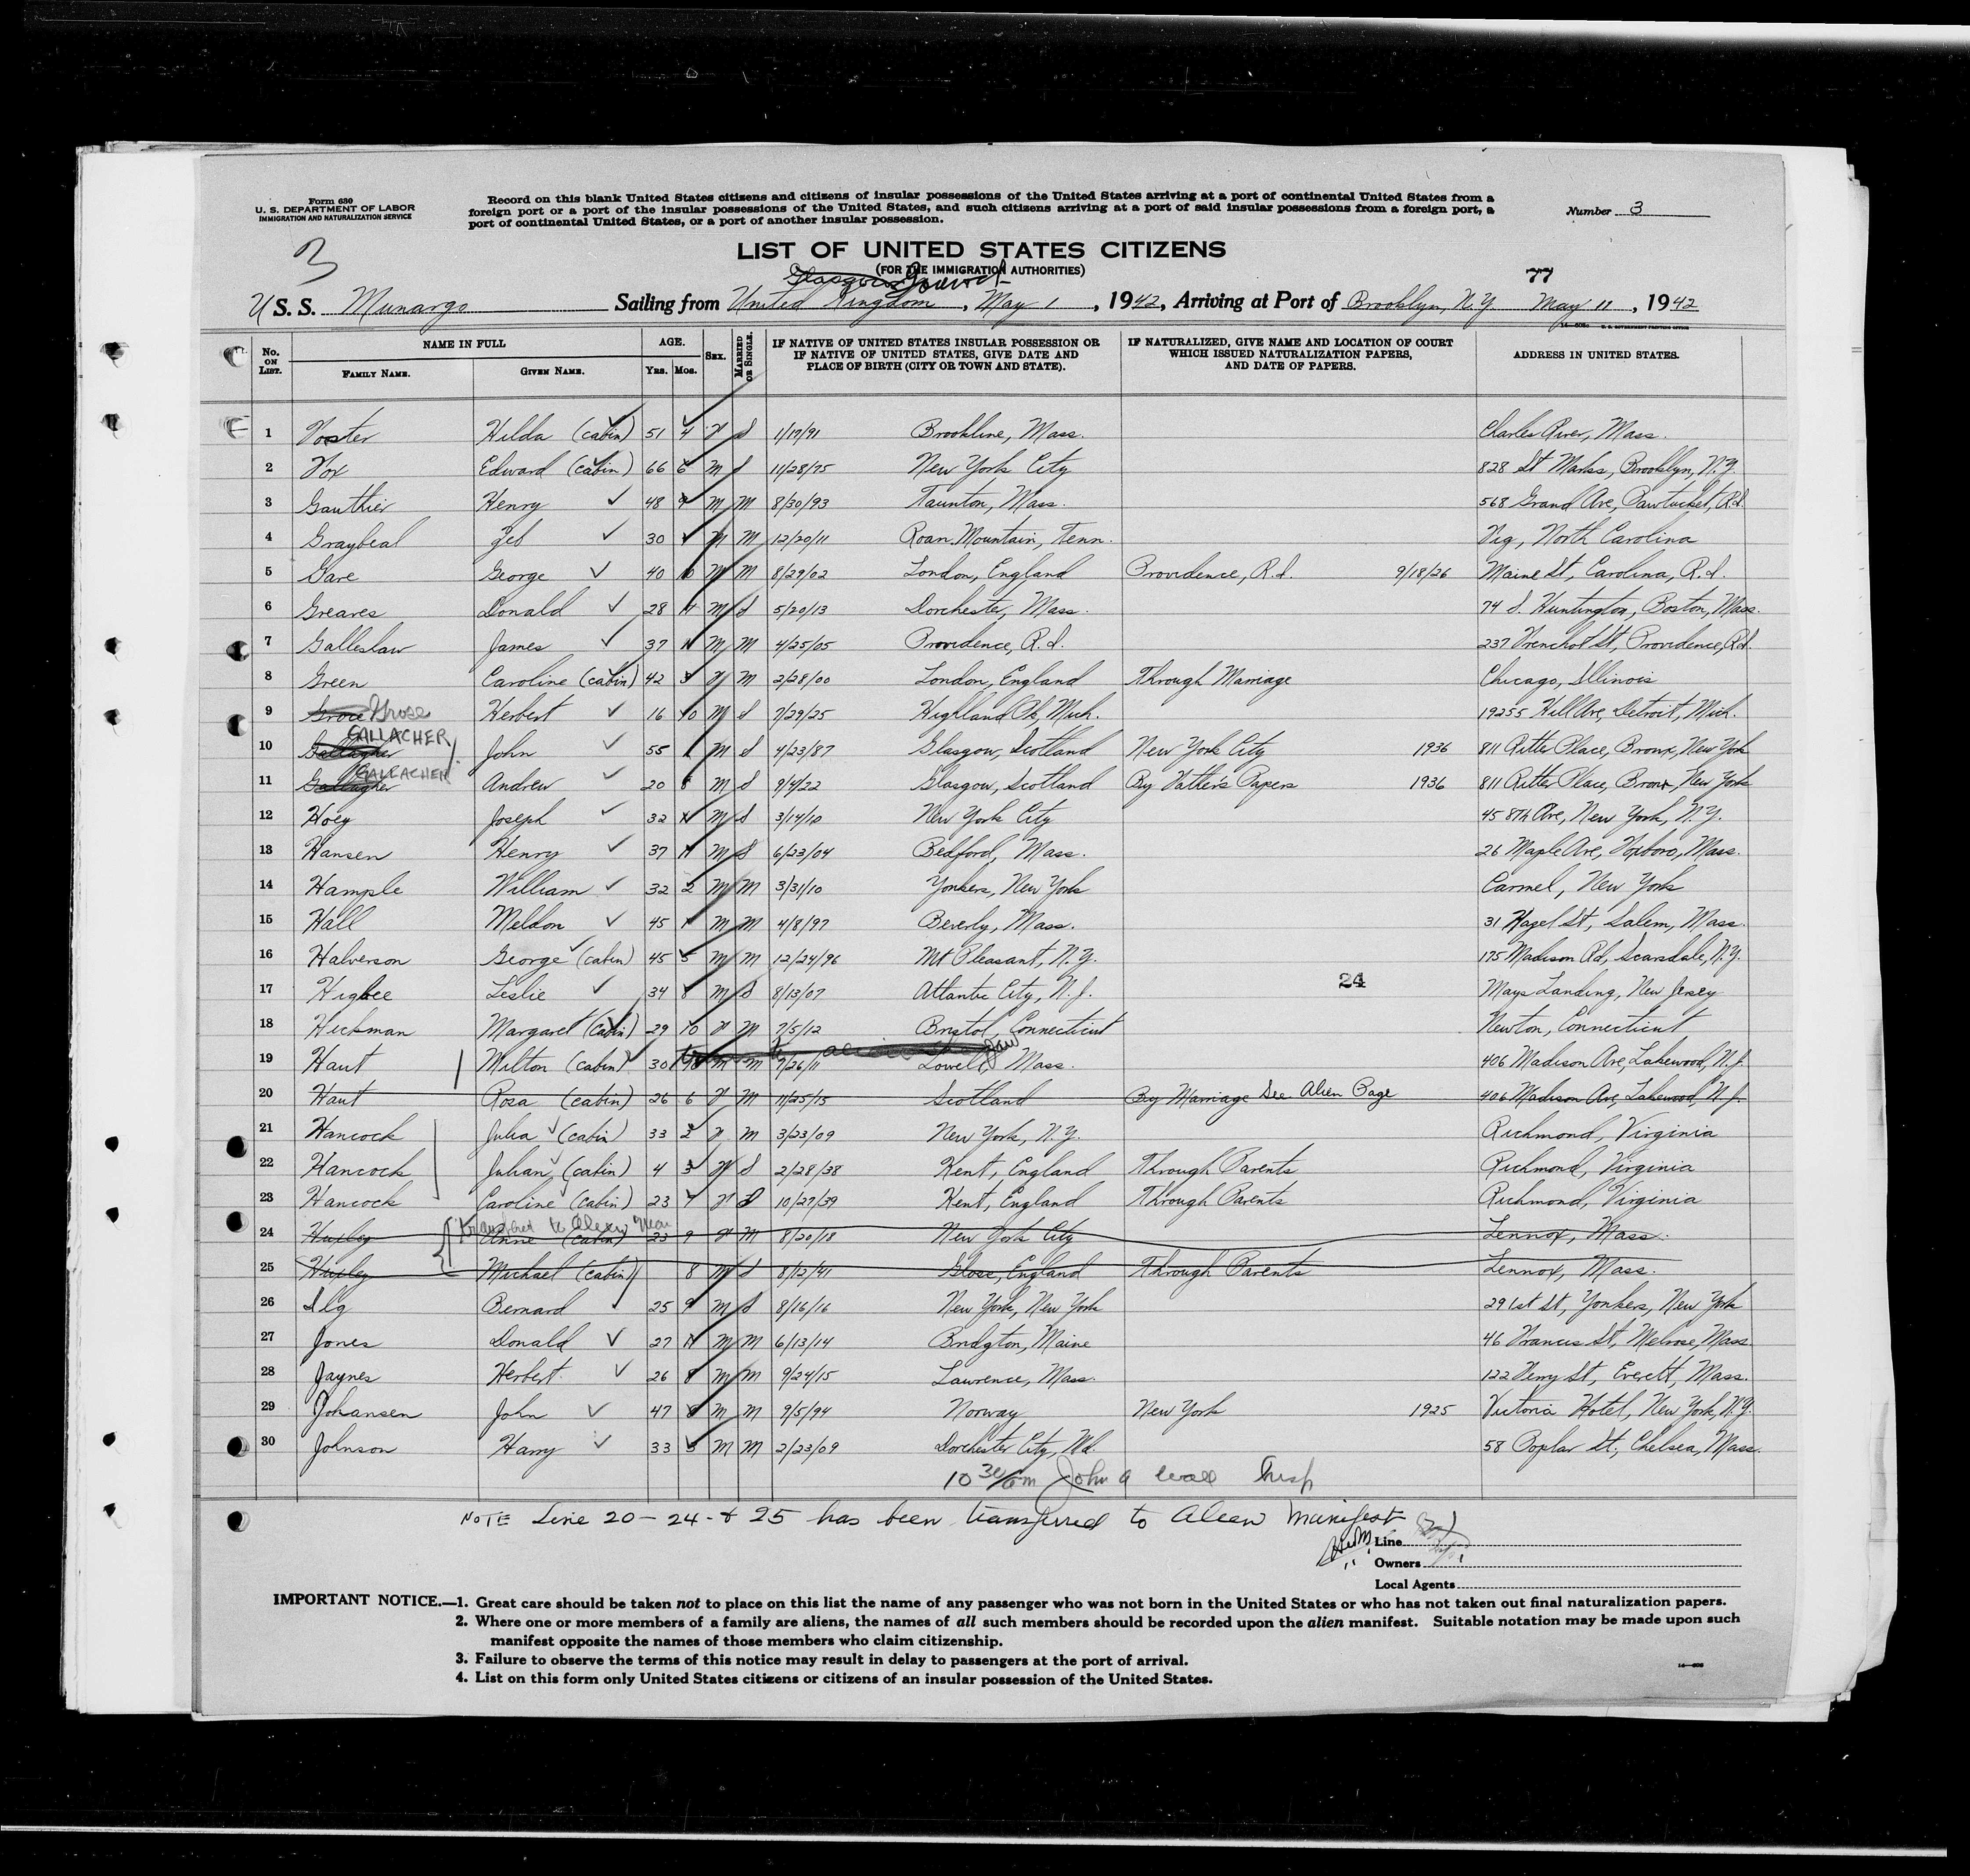 Form 630
U. S. DEPARTMENT OF LABOR
IMMIGRATION AND NATURALIZATION SERVICE
Record on this blank United States citizens and citizens of insular possessions of the United States arriving at a port of continental United States from a
foreign port or a port of the insular possessions of the United States, and such citizens arriving at a port of said insular possessions from a foreign port, a
port of continental United States, or a port of another insular possession.
Number 3
3
LIST OF UNITED STATES CITIZENS
(FOR THE IMMIGRATION AUTHORITIES)
Glasgow Gourock
77
U S. S. Munargo Sailing from United Kingdom, May 1, 1942, Arriving at Port of Brooklyn, N.Y. May 11, 1942
No. ON LIST. NAME IN FULL FAMILY NAME. GIVEN NAME. AGE. YRS. MOS. SEX. MARRIED OR SINGLE. IF NATIVE OF UNITED STATES INSULAR POSSESSION OR IF NATIVE OF UNITED STATES, GIVE DATE AND PLACE OF BIRTH (CITY OR TOWN AND STATE). IF NATURALIZED, GIVE NAME AND LOCATION OF COURT WHICH ISSUED NATURALIZATION PAPERS, AND DATE OF PAPERS. ADDRESS IN UNITED STATES.
1 Foster Hilda (cabin) 51 4 F S 1/19/91 Brookline, Mass. Charles River, Mass.
2 Fox Edward (cabin) 66 6 M S 11/28/75 New York City 828 St Marks, Brooklyn, N.Y.
3 Gauthier Henry 48 9 M M 8/30/93 Taunton, Mass. 568 Grand Ave, Pawtucket, R.I.
4 Graybeal Zeb 30 M M 12/20/11 Roan Mountain, Tenn. Fig, North Carolina
5 Gare George 40 10 M M 8/29/02 London, England Providence, R.I. 9/18/26 Maine St, Carolina, R.I.
6 Greaves Donald 28 11 M S 5/20/13 Dorchester, Mass. 74 S. Huntington, Boston, Mass.
7 Galleslaw James 37 M M 4/25/05 Providence, R.I. 237 St, Providence, R.I.
8 Green Caroline (cabin) 42 3 F M 2/28/00 London, England Through Marriage Chicago, Illinois
9 Grose Herbert 16 10 M S 7/29/25 Highland Pk, Mich. 19255 Hill Ave, Detroit, Mich.
10 Gallagher GALLACHER John 55 1 M S 4/23/87 Glasgow, Scotland New York City 1936 811 Ritter Place, Bronx, New York
11 Gallagher GALLACHER Andrew 20 8 M S 9/4/22 Glasgow, Scotland By Father's Papers 1936 811 Ritter Place, Bronx, New York
12 Hoey Joseph 32 M S 3/14/10 New York City 45 8th Ave, New York, N.Y.
13 Hansen Henry 37 11 M S 6/23/04 Bedford, Mass. 26 Maple Ave, Foxboro, Mass.
14 Hample William 32 2 M M 3/31/10 Yonkers, New York Carmel, New York
15 Hall Meldon 45 1 M M 4/8/97 Beverly, Mass. 31 Hazel St, Salem, Mass.
16 Halverson George (cabin) 45 5 M M 12/24/96 Mt Pleasant, N.Y. 175 Madison Rd, Scarsdale, N.Y.
24
17 Higbee Leslie 34 8 M S 8/13/07 Atlantic City, N.J. Mays Landing, New Jersey
18 Heckman Margaret (cabin) 29 10 F M 7/5/12 Bristol, Connecticut Newton, Connecticut
19 Haut Milton (cabin) 30 M M 7/26/11 Lowell, Mass. 406 Madison Ave, Lakewood, N.J.
20 Haut Rosa (cabin) 26 6 F M 11/25/15 Scotland By Marriage See Alien Page 406 Madison Ave, Lakewood, N.J.
21 Hancock Julia (cabin) 33 2 F M 3/23/09 New York, N.Y. Richmond, Virginia
22 Hancock Julian (cabin) 4 3 S 2/28/38 Kent, England Through Parents Richmond, Virginia
23 Hancock Caroline (cabin) 23 7 F S 10/27/39 Kent, England Through Parents Richmond, Virginia
transferred to Alien Man
24 Huxley Anne (cabin) 23 9 F M 8/20/18 New York City Lennox, Mass.
25 Huxley Michael (cabin) 8 M S 8/12/41 Glosc, England Through Parents Lennox, Mass.
26 Ilg Bernard 25 9 M S 8/16/16 New York, New York 29 1st St, Yonkers, New York
27 Jones Donald 27 11 M M 6/13/14 Bridgton, Maine 46 Francis St, Melrose, Mass.
28 Jaynes Herbert 26 8 M M 9/24/15 Lawrence, Mass. 122 Ferry St, Everett, Mass.
29 Johansen John 47 8 M M 9/5/94 Norway New York 1925 Victoria Hotel, New York, N.Y.
30 Johnson Harry 33 3 M M 2/23/09 Dorchester City, Md. 58 Poplar St, Chelsea, Mass.
10 30/am John A Wall Insp
NOTE Line 20 - 24 - & 25 has been transferred to Alien Manifest
Line
Owners
Local Agents
IMPORTANT NOTICE.—1. Great care should be taken not to place on this list the name of any passenger who was not born in the United States or who has not taken out final naturalization papers.
2. Where one or more members of a family are aliens, the names of all such members should be recorded upon the alien manifest. Suitable notation may be made upon such
manifest opposite the names of those members who claim citizenship.
3. Failure to observe the terms of this notice may result in delay to passengers at the port of arrival.
4. List on this form only United States citizens or citizens of an insular possession of the United States.